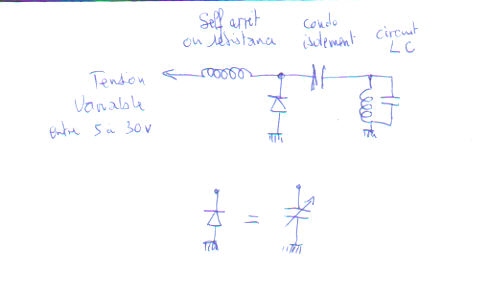 Self arret
ou résistance
Condo
isolement
circuit
LC
Tension
Variable
entre 5 a 30v
=